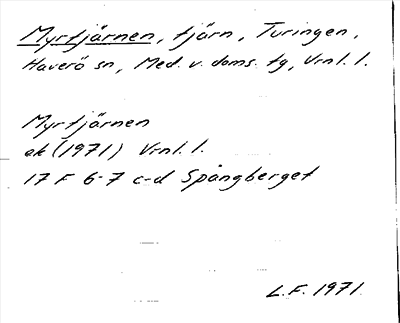 Myrtjärnen, tjärn, Turingen,
Haverö sn, Med. v. doms. tg, Vrnl. l.
Myrtjärnen
ek (1971) Vrnl. l.
17 F 6-7 c-d Spångberget
L.F. 1971